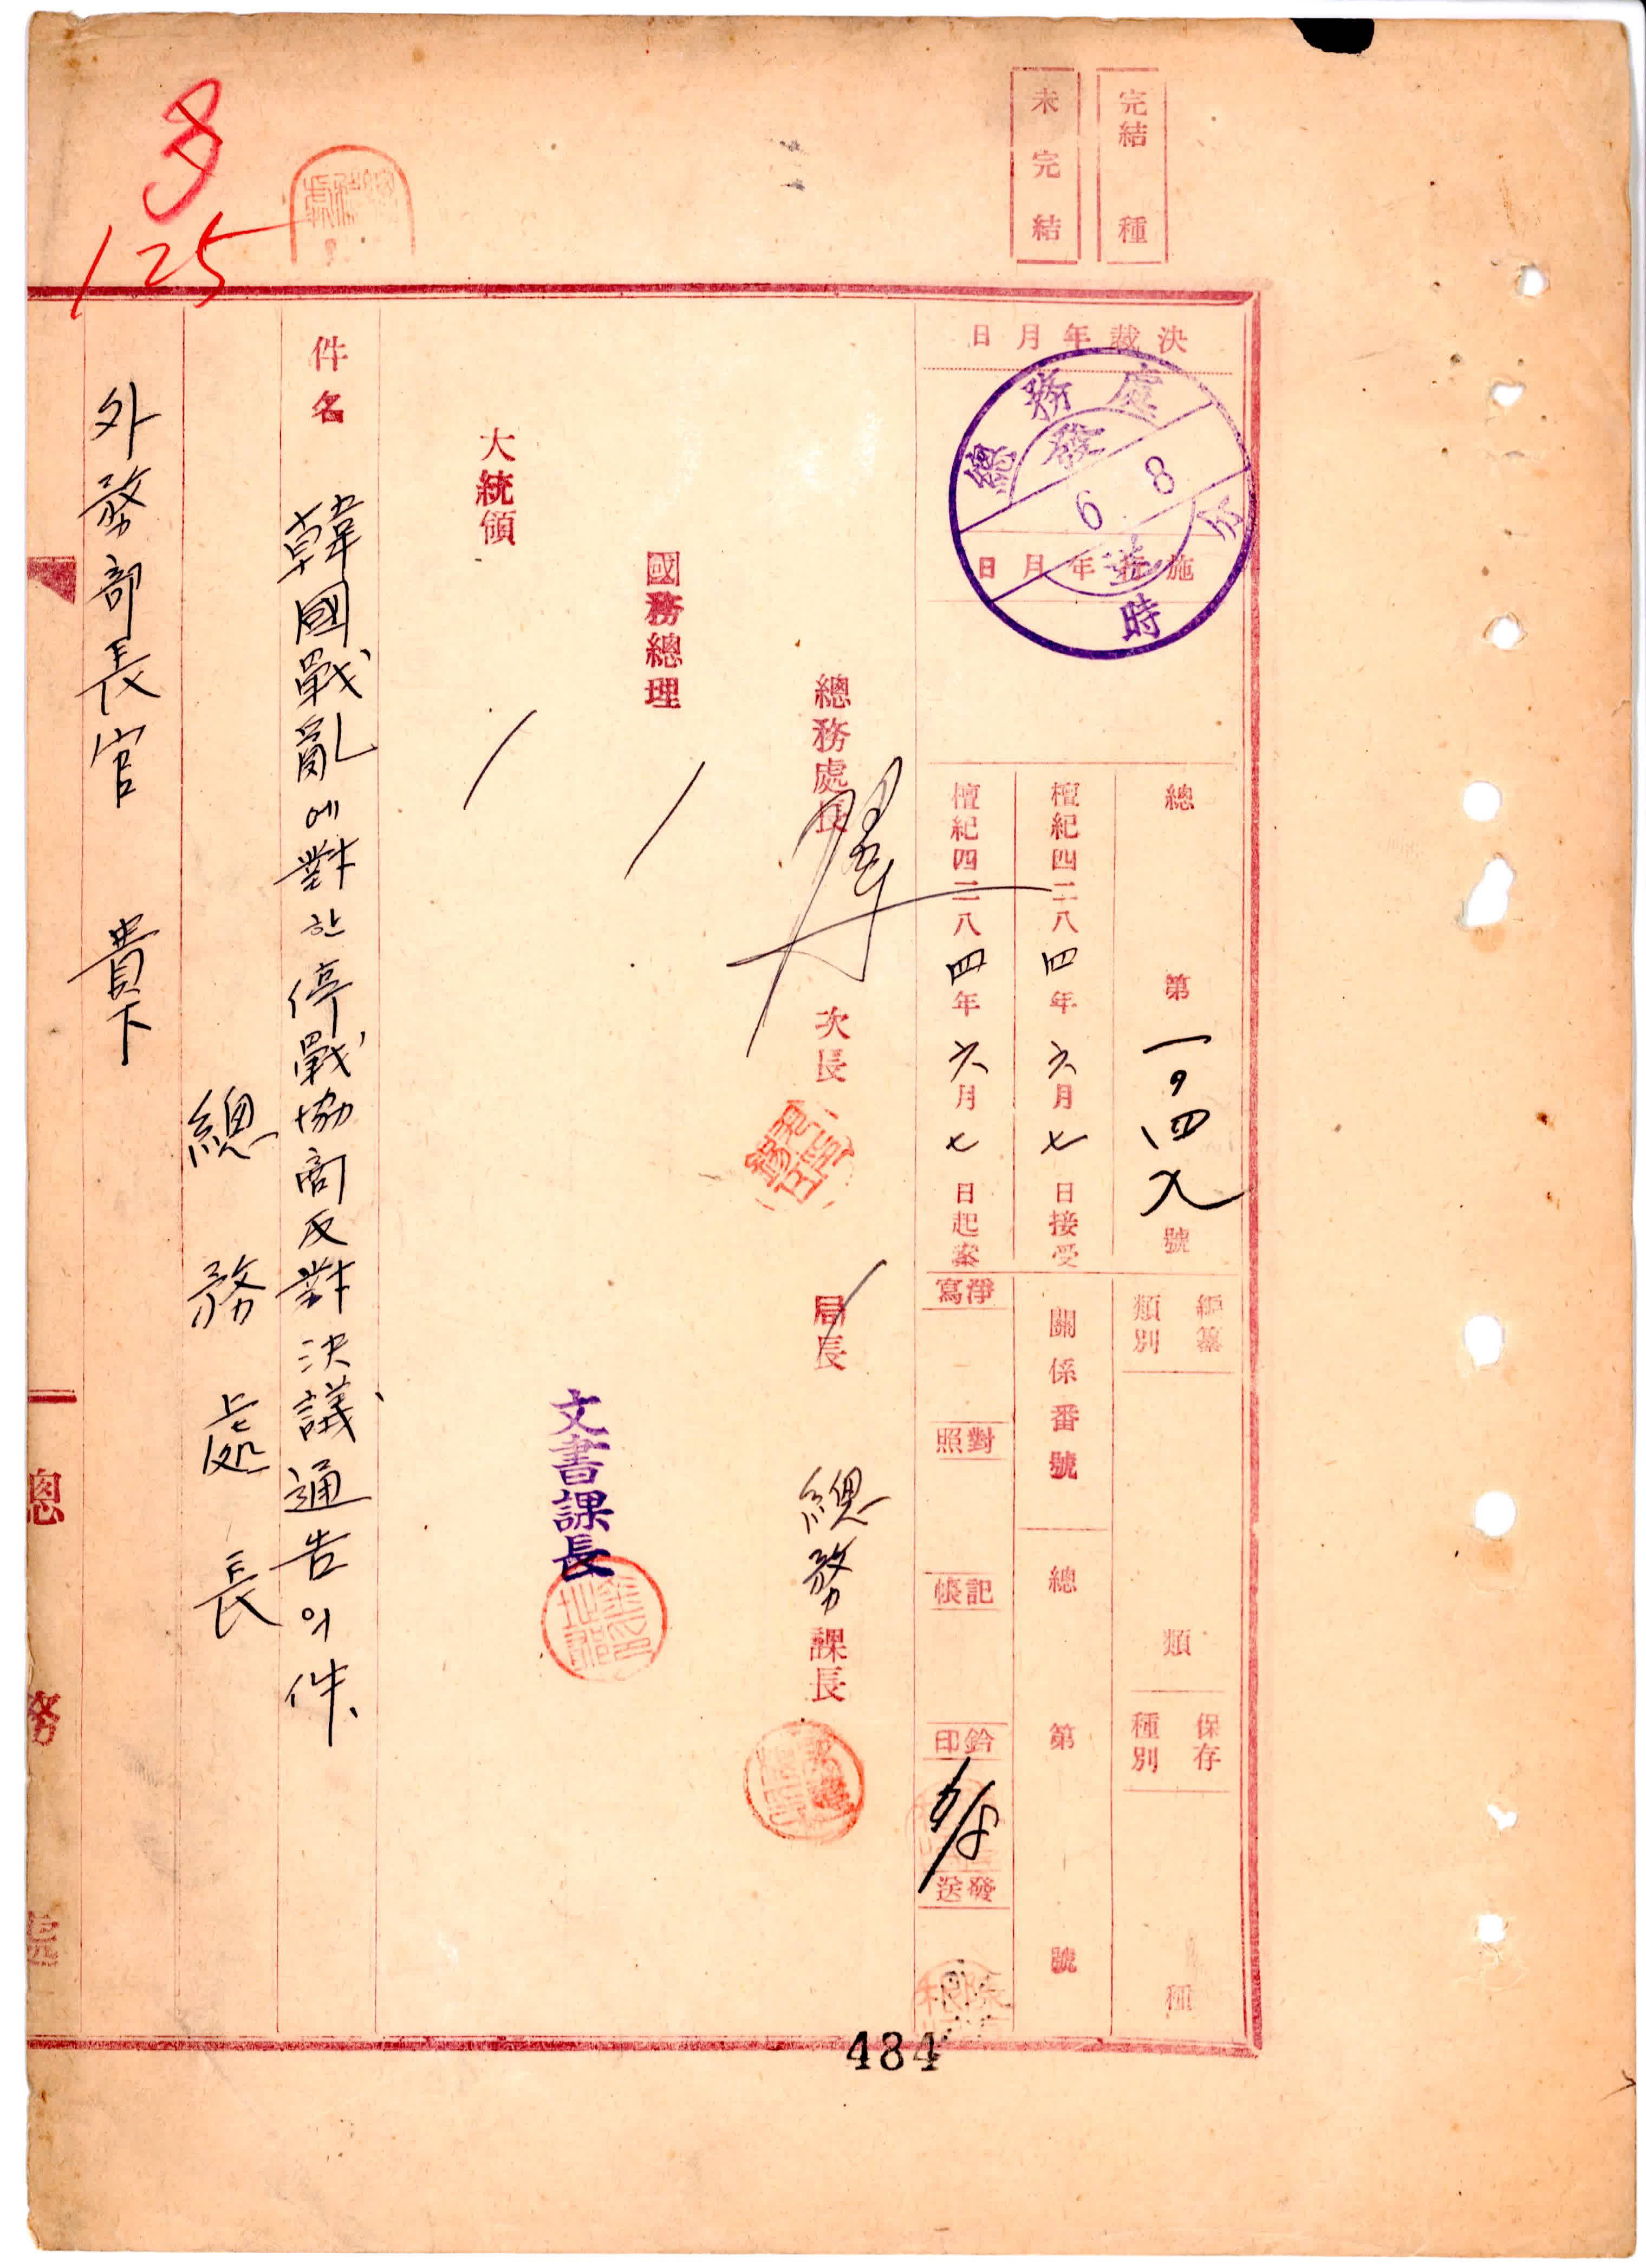 完結 種
未完結
決裁年月日
施行年月日
總務處
發送
6 8
時 分
總 第一〇四九號
檀紀四二八四年六月七日接受
檀紀四二八四年六月七日起案
編纂類別 類
保存種別 種
關係番號 總 第 號
淨寫
對照
記帳
鈐印
6/8
發送
總務處長 次長 局長 總務課長
國務總理
文書課長
大統領
件名 韓國戰亂에對한停戰協商反對決議通告의件、
總務處長
外務部長官 貴下
總務處
125
484